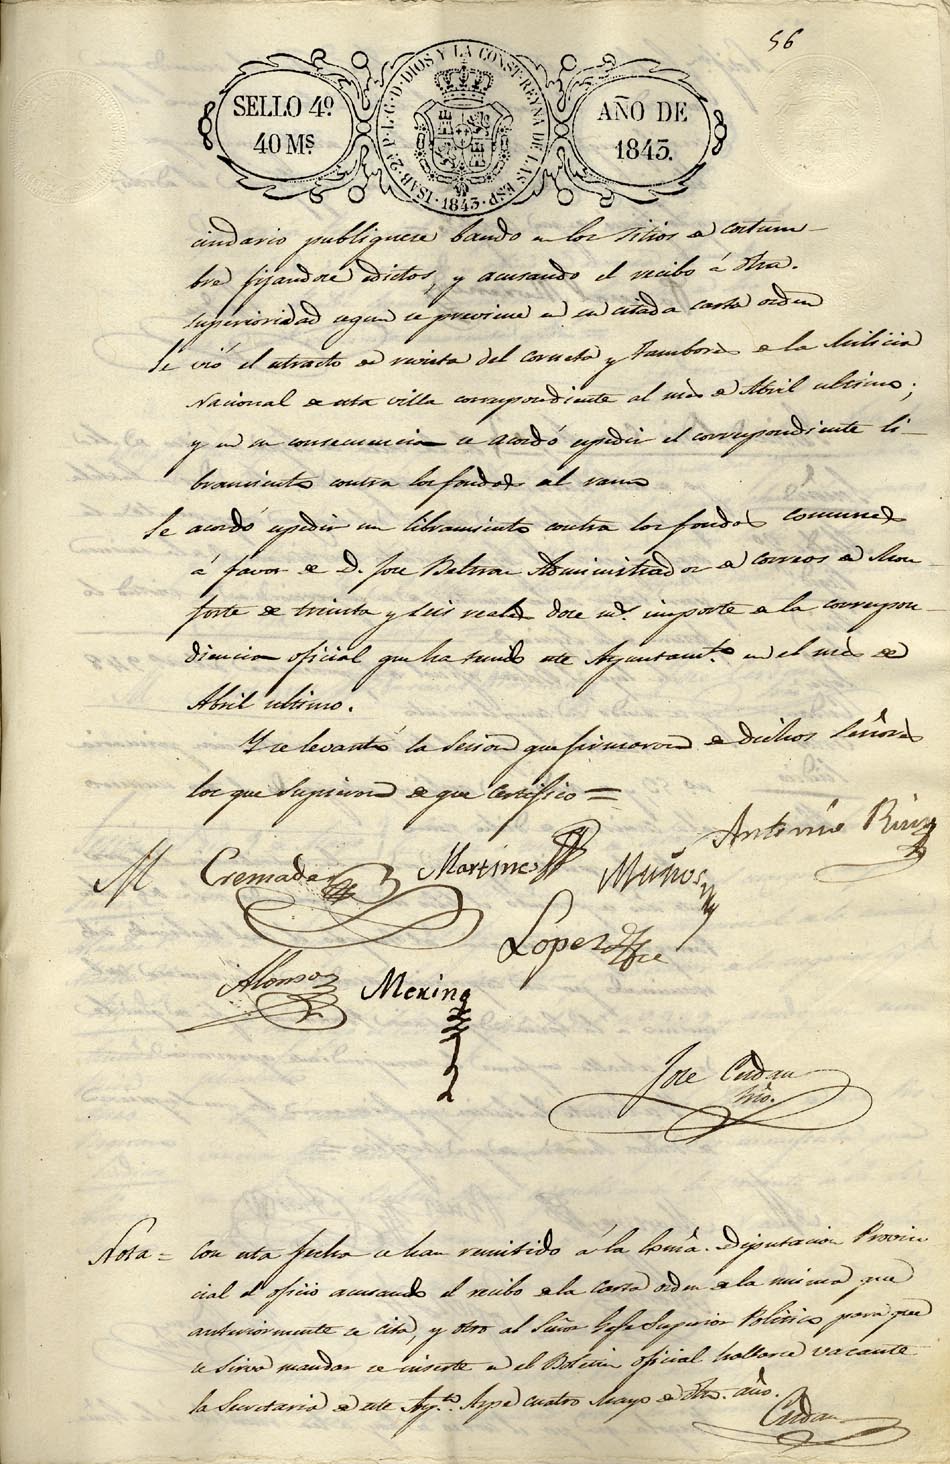 56
SELLO 4º
40 Ms.
ISAB. 2ª P. L. G. D. DIOS Y LA CONST. REYNA DE LAS ESP. 1843.
AÑO DE
1843.
cindario publiquese bando en los sitios de costum-
bre fijandose edictos, y acusando el recibo á dha.
superioridad segun se previene en su citada carta orden
Se vió el extracto de revista del corneta y tambores de la Milicia
Nacional de esta villa correspondiente al mes de Abril ultimo;
y en su consecuencia se acordó espedir el correspondiente li-
bramiento contra los fondos del ramo
Se acordó espedir un libramiento contra los fondos comunes
á favor de D. Jose Beltran Administrador de correos de Mon-
forte de treinta y seis reales doce ms. importe de la correspon-
dencia oficial que ha tenido este Ayuntamto. en el mes de
Abril ultimo.
Y se levantó la Sesion que firmaron de dichos Señores
los que supieron de que certifico=
Antonio Ruiz
M Cremades Martinez Muños
Lopez
Alonso Merino
Jose Cerdan
Srio.
Nota = Con esta fecha se han remitido á la Exma. Diputacion Provin
cial el oficio acusando el recibo de la carta orden de la misma que
anteriormente se cita, y otro al Señor Gefe Superior Politico para que
se sirva mandar se inserte en el Boletin oficial hallarse vacante
la Secretaria de este Aymto. Aspe cuatro Mayo de dho. año.
Cerdan